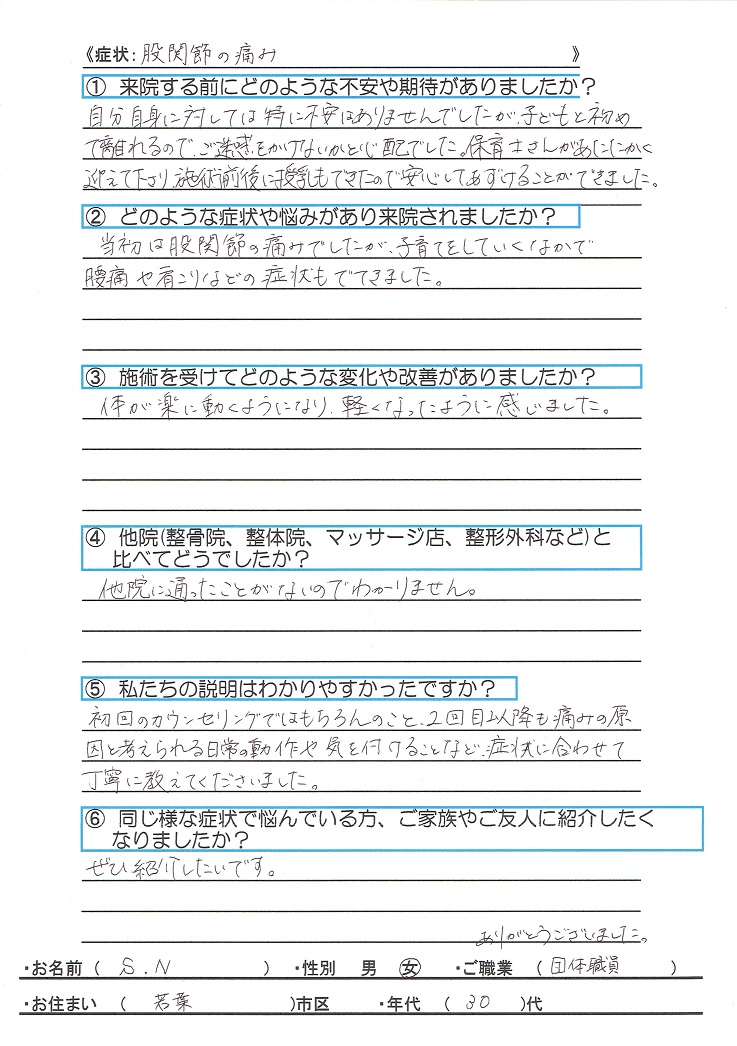 《症状: 股関節の痛み 》
① 来院する前にどのような不安や期待がありましたか?
自分自身に対しては特に不安はありませんでしたが、子どもと初め
て離れるので、ご迷惑をかけないかと心配でした。保育士さんがあたたかく
迎えて下さり、施術前後に授乳もできたので安心してあずけることができました。
② どのような症状や悩みがあり来院されましたか?
当初は股関節の痛みでしたが、子育てをしていくなかで
腰痛や肩こりなどの症状もでてきました。
③ 施術を受けてどのような変化や改善がありましたか?
体が楽に動くようになり、軽くなったように感じました。
④ 他院(整骨院、整体院、マッサージ店、整形外科など)と
比べてどうでしたか?
他院に通ったことがないのでわかりません。
⑤ 私たちの説明はわかりやすかったですか?
初回のカウンセリングではもちろんのこと、2回目以降も痛みの原
因と考えられる日常の動作や気を付けることなど、症状に合わせて
丁寧に教えてくださいました。
⑥ 同じ様な症状で悩んでいる方、ご家族やご友人に紹介したく
なりましたか?
ぜひ紹介したいです。
ありがとうございました。
・お名前 ( S.N ) ・性別 男 女 ・ご職業 ( 団体職員 )
・お住まい ( 若葉 )市区 ・年代 ( 30 )代